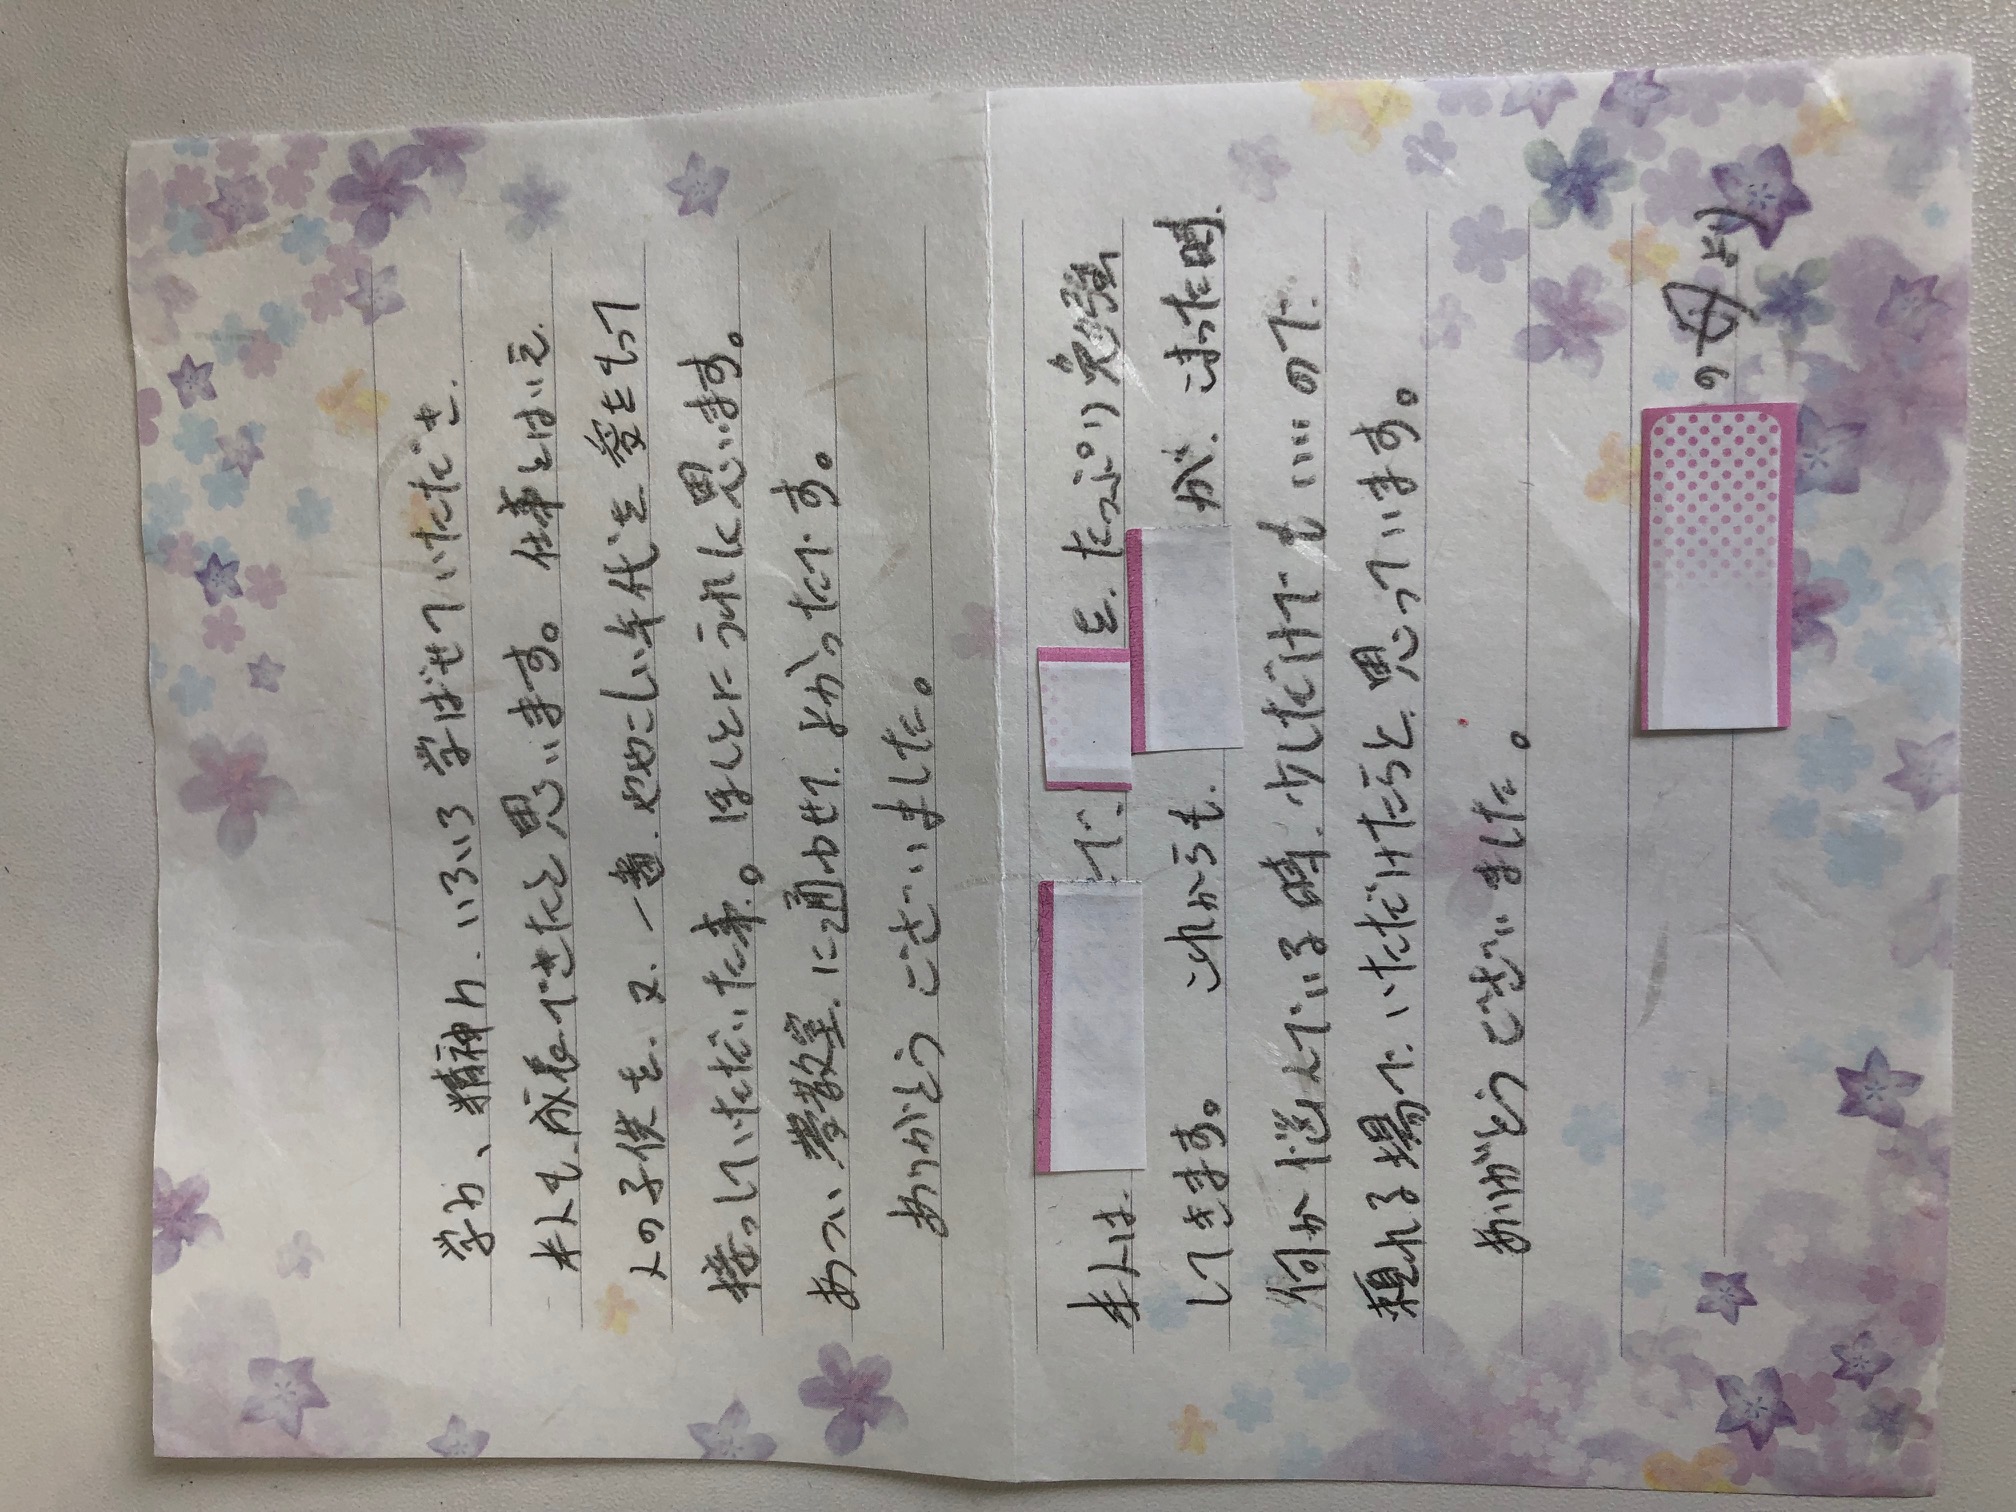 学力、精神力、いろいろ学ばせていただき、
本人も、成長できたと思います。仕事とはいえ、
人の子供を、又、一番、ややこしい年代を愛をもって
接っしていただいた事。ほんとにうれしく思います。
あつい夢教室、に通わせて、よかったです。
ありがとうございました。
本人は、 で、 を、たっぷり勉強
してきます。 これからも、 が、こまった時、
何か悩んでいる時、少しだけでもいいので、
頼れる場で、いただけたらと思っています。
ありがとうございました。
の母より